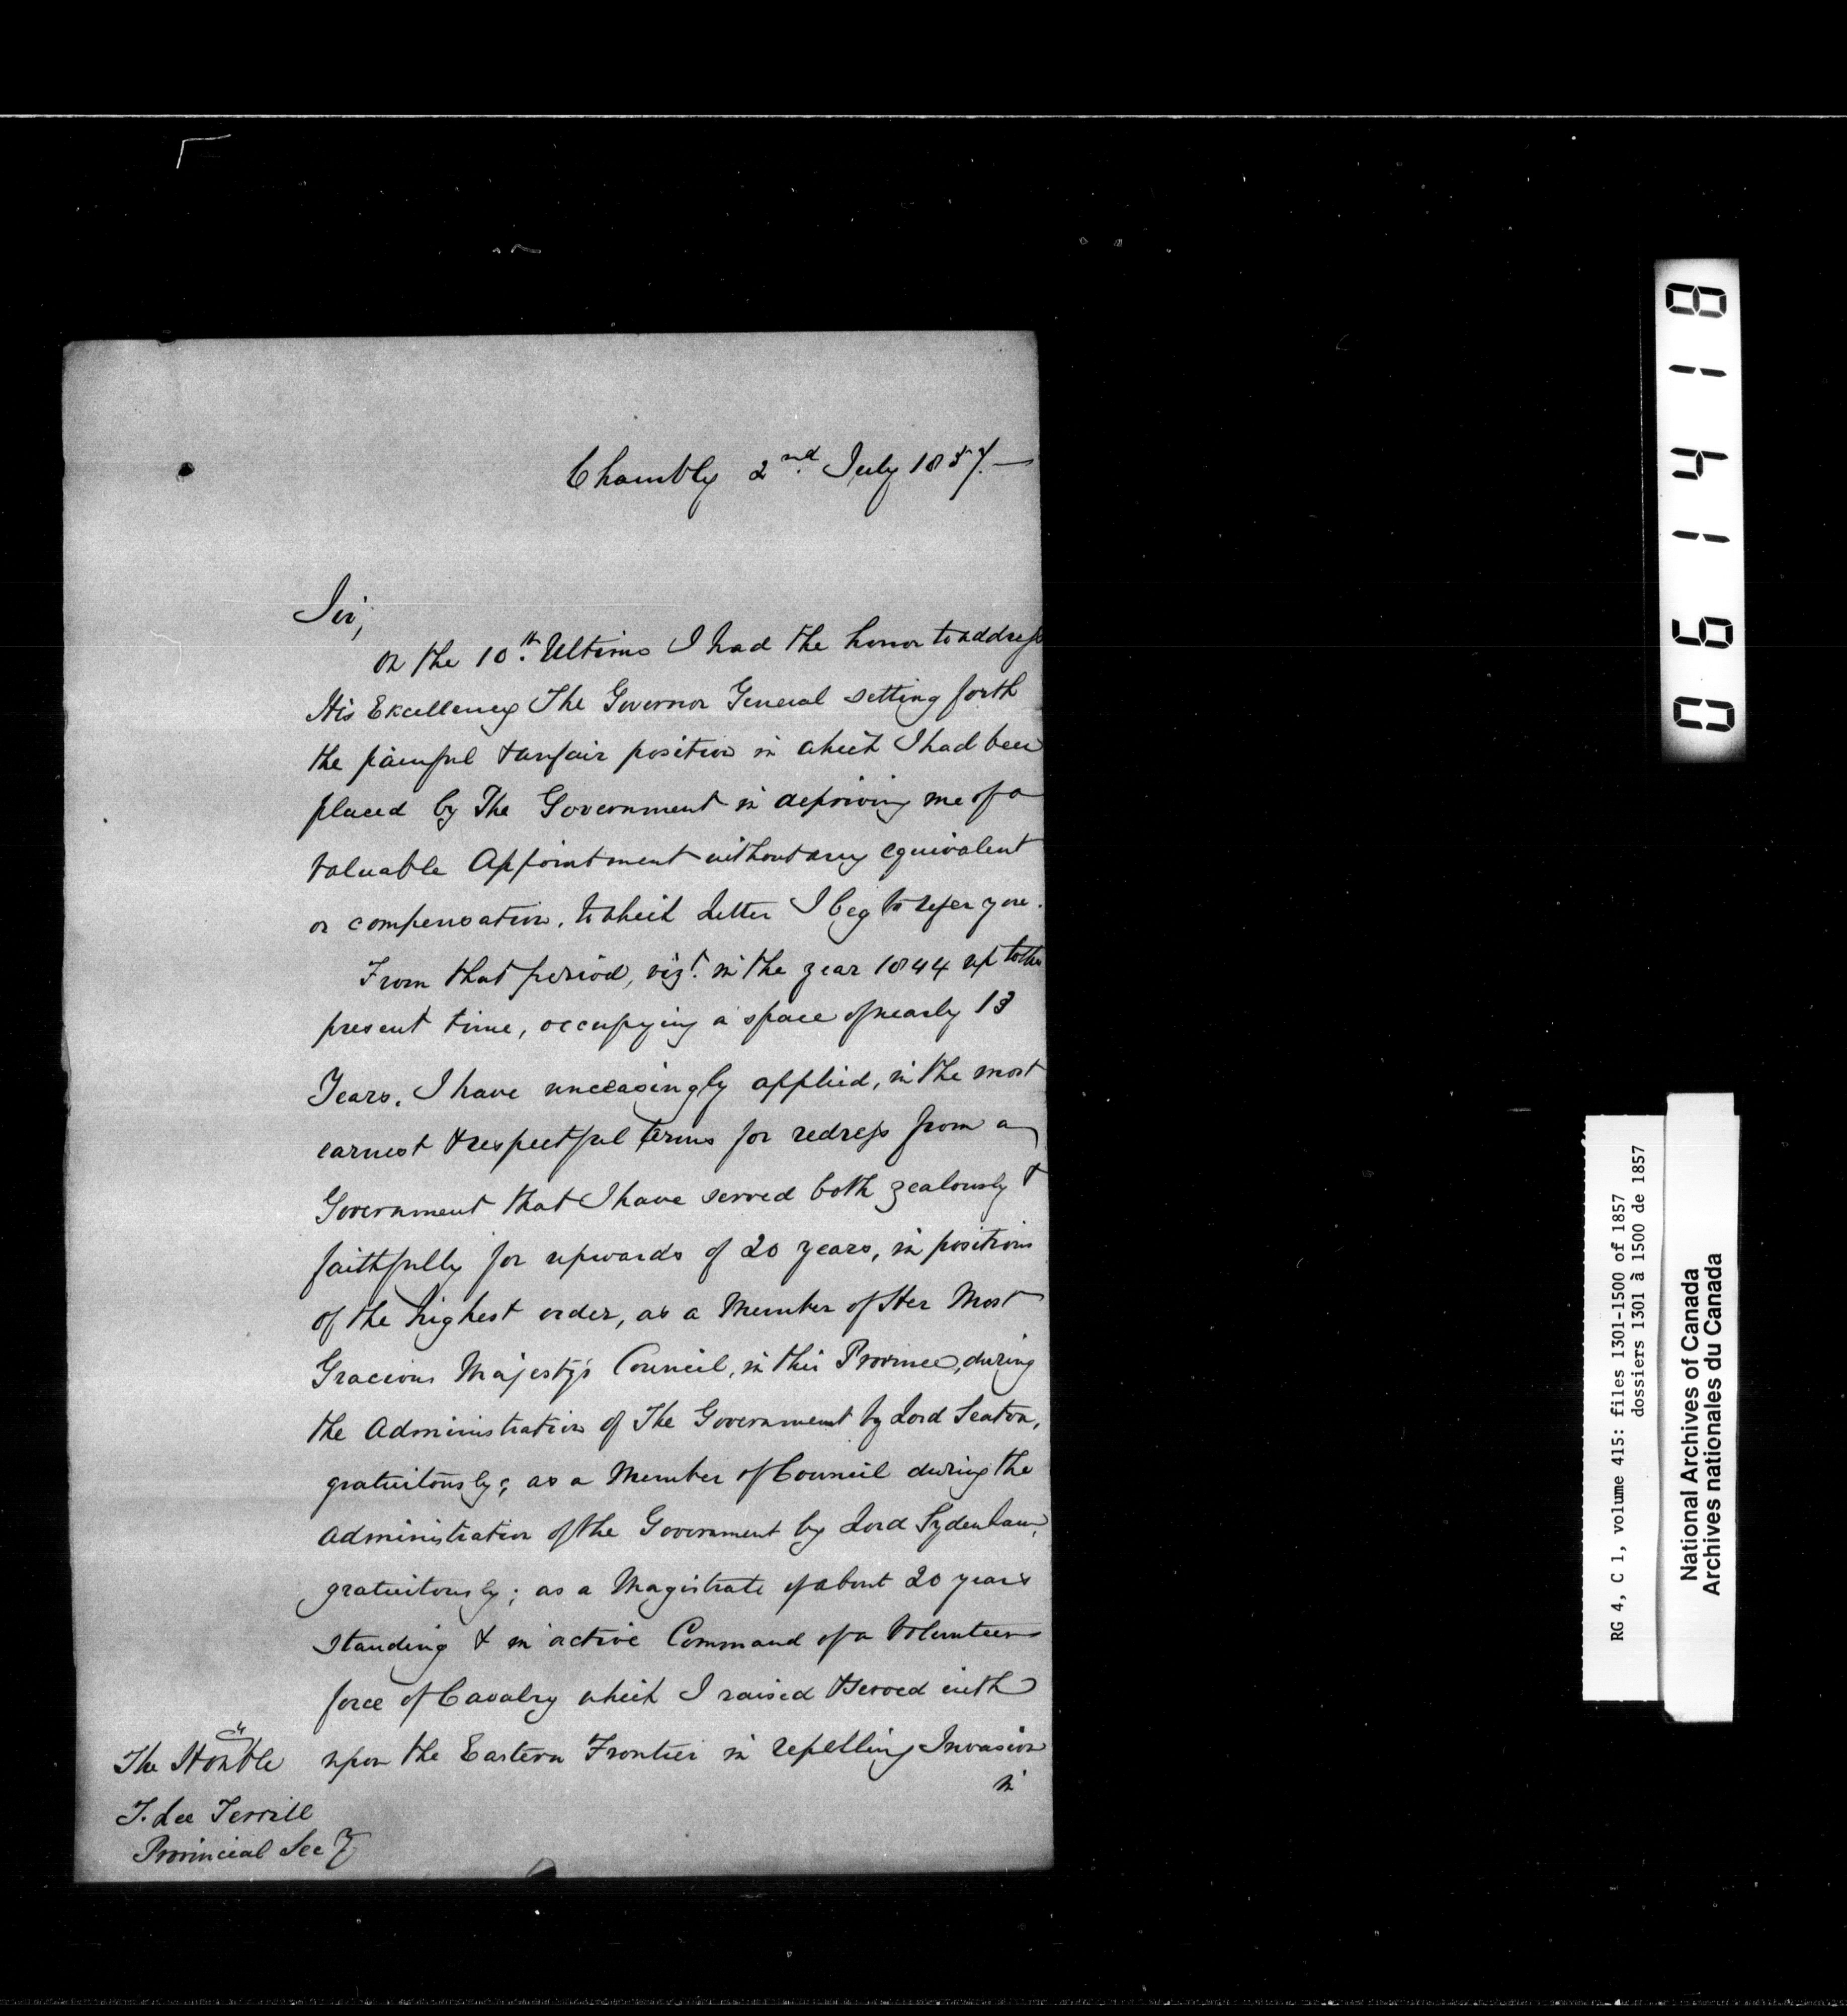 Chambly 2nd. July 1857.—
Sir,
On the 10th. Ultimo I had the honor to address
His Excellency The Governor General setting forth
the painful & unfair position in which I had been
placed by The Government in depriving me of a
valuable Appointment without any equivalent
or compensation, to which Letter I beg to refer you.
From that period, vizt. in the year 1844 up to the
present time, occupying a space of nearly 13
Years, I have unceasingly applied, in the most
earnest & respectful terms for redress from a
Government that I have served both zealously &
faithfully for upwards of 20 years, in positions
of the highest order, as a Member of Her Most
Gracious Majesty's Council, in this Province, during
the Administration of The Government by Lord Seaton,
gratuitously; as a Member of Council during the
Administration of the Government by Lord Sydenham,
gratuitously; as a Magistrate of about 20 years
standing & in active Command of a Volunteer
force of Cavalry which I raised & served with
upon the Eastern Frontier in repelling Invasion
in
The Honble
T. Lee Terrill
Provincial Secy
061418
RG 4, C 1, volume 415: files 1301-1500 of 1857
dossiers 1301 à 1500 de 1857
National Archives of Canada
Archives nationales du Canada